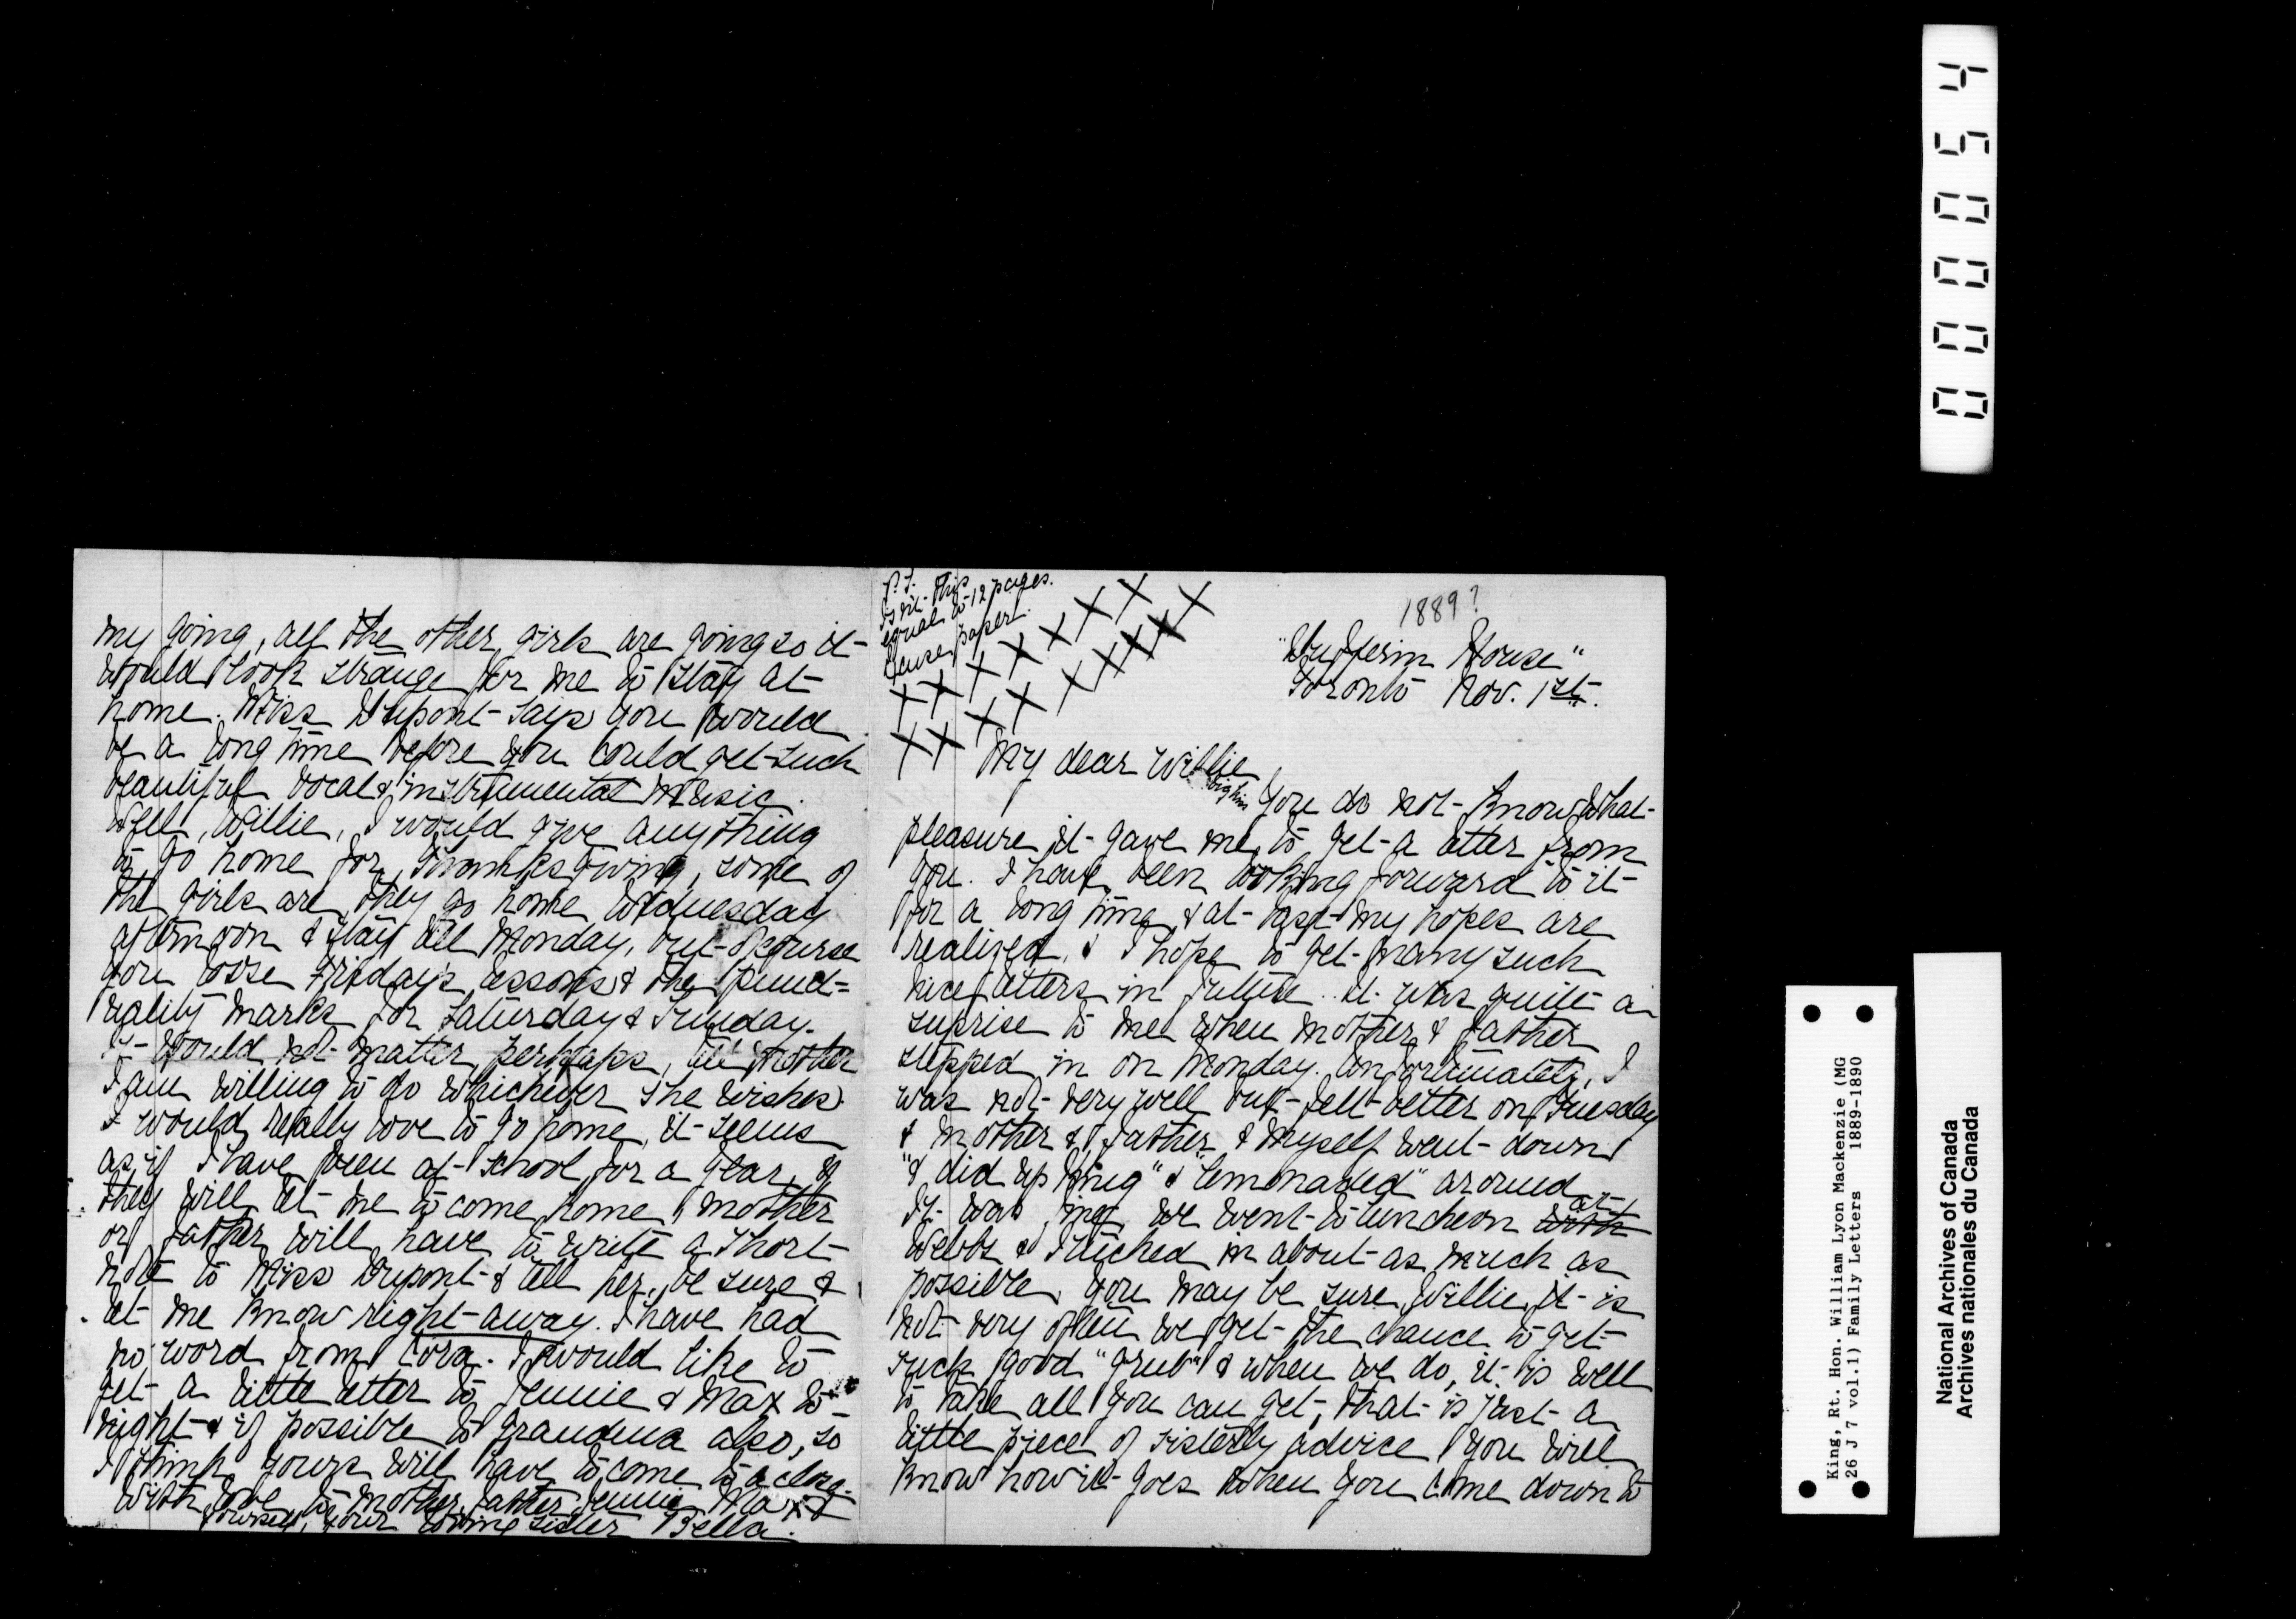 my going, all the other girls are going so it
would look strange for me to stay at
home. Miss Dupont says you would
be a long time before you could get such
beautiful vocal & instrumental music.
Well, Willie, I would give anything
to go home for Thanksgiving, some of
the girls are, they go home Wednesday
afternoon & stay till Monday, but of course
you lose Fridays lessons & the punct=
uality marks for Saturday & Sunday.
It would not matter perhaps, tell mother
I am willing to do whichever she wishes.
I would really love to go home, it seems
as if I have been at school for a year, if
they will let me to come home, mother
or father will have to write a short
note to Miss Dupont & tell her, be sure &
let me know right away. I have had
no word from Cora. I would like to
get a little letter to Jennie & Max to
night & if possible to Grandma also, so
I think yours will have to come to a close.
With love to mother, father, Jennie, Max &
yourself, your loving sister Bella.
P.S.
Isn't this
equal to 12 pages.
Excuse paper.
X X X X X X X X
X X X X X X X X X
1889?
"Dufferin House"
Toronto Nov. 1st.
My dear Willie
You do not know what
pleasure it gave me to get a letter from
you. I have been looking forward to it
for a long time & at last my hopes are
realized, & I hope to get many such
nice letters in future. It was quite a
suprise to me when mother & father
stepped in on Monday. Unfortunately, I
was not very well but felt better on Tuesday
& mother & father & myself went down
"& did up King" & "lemonaded" around
It was we went to luncheon with at
Webbs & I tucked in about as much as
possible, you may be sure, Willie, it is
not very often we get the chance to get
such good "grub" & when we do, it is well
to take all you can get, that is just a
little piece of sisterly advice you will
know how it goes when you come down to
000054
King, Rt. Hon. William Lyon Mackenzie (MG
26 J 7 vol.1) Family Letters 1889-1890
National Archives of Canada
Archives nationales du Canada